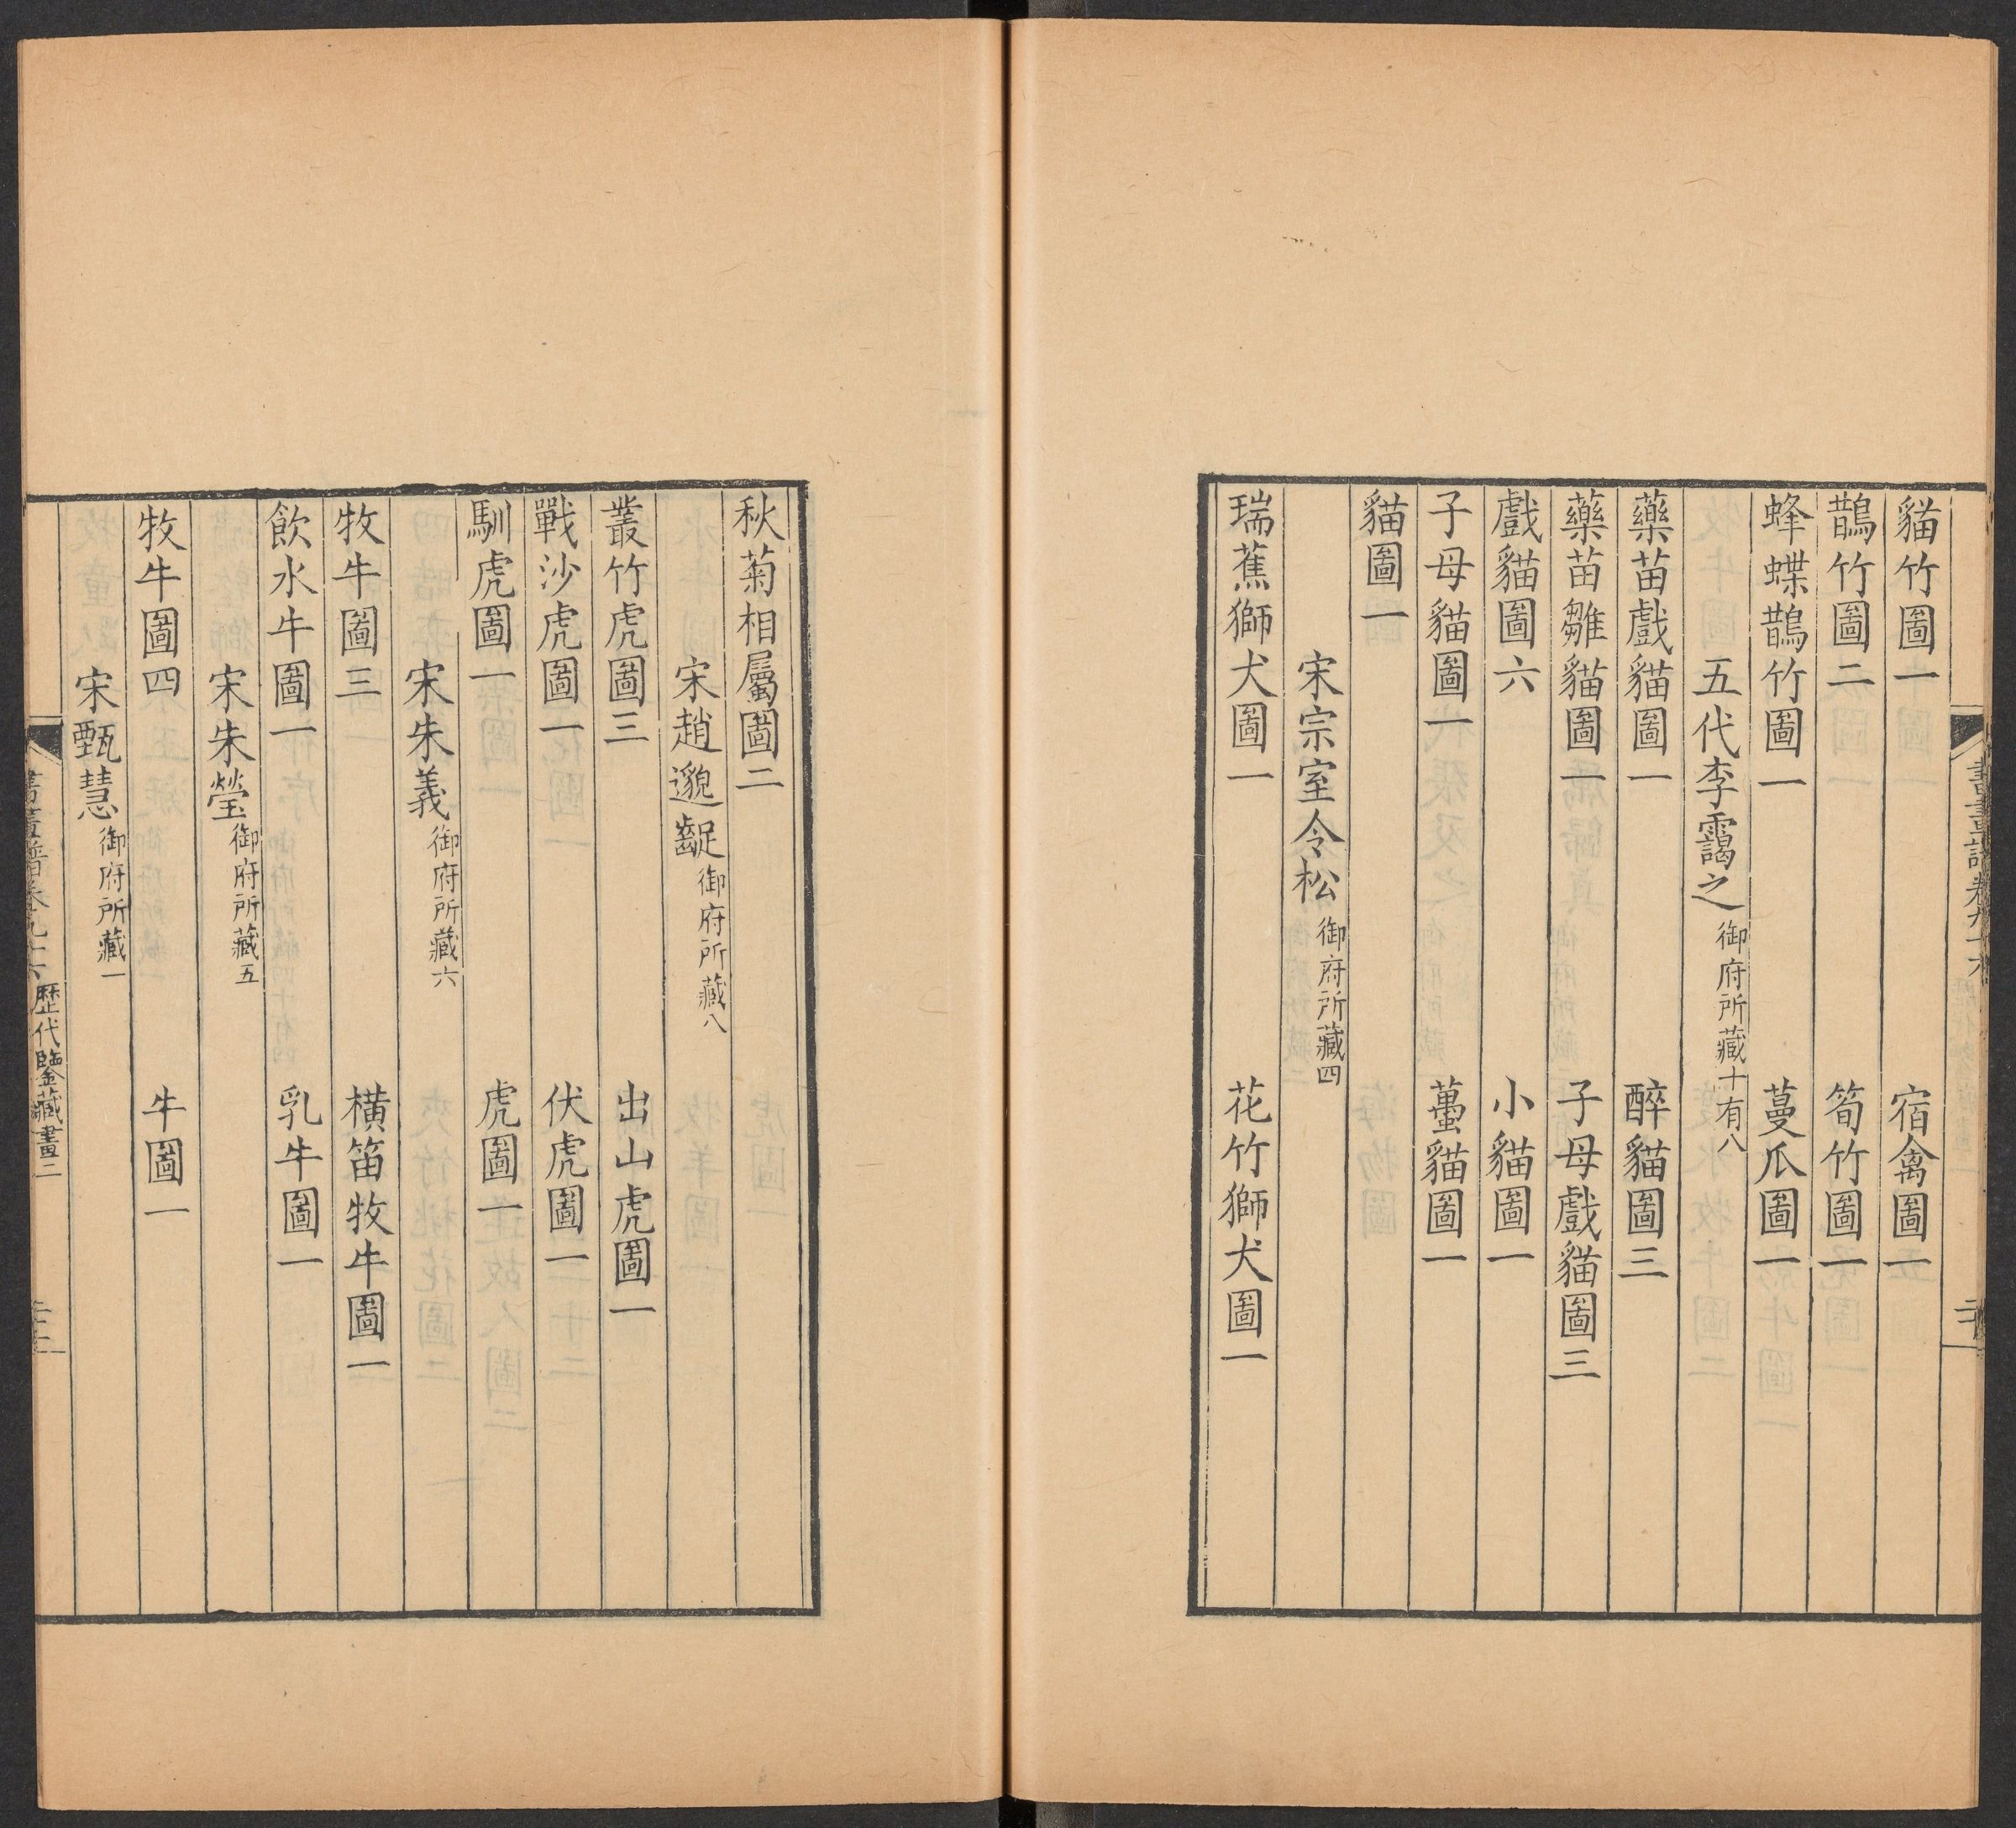 貓竹圖一 宿禽圖一
鵲竹圖二 筍竹圖一
蜂蝶鵲竹圖一 蔓瓜圖一
五代李靄之 御府所藏十有八
藥苗戲貓圖一 醉貓圖三
藥苗雛貓圖一 子母戲貓圖三
戲貓圖六 小貓圖一
子母貓圖一 蠆貓圖一
貓圖一
宋宗室令松 御府所藏四
瑞蕉獅犬圖一 花竹獅犬圖一
秋菊相屬圖二
宋趙邈齪 御府所藏八
叢竹虎圖三 出山虎圖一
戰沙虎圖一 伏虎圖一
馴虎圖一 虎圖一
宋朱義 御府所藏六
牧牛圖三 橫笛牧牛圖一
飲水牛圖一 乳牛圖一
宋朱瑩 御府所藏五
牧牛圖四 牛圖一
宋甄慧 御府所藏一
書畫譜卷九十六 歷代鑒藏畫二